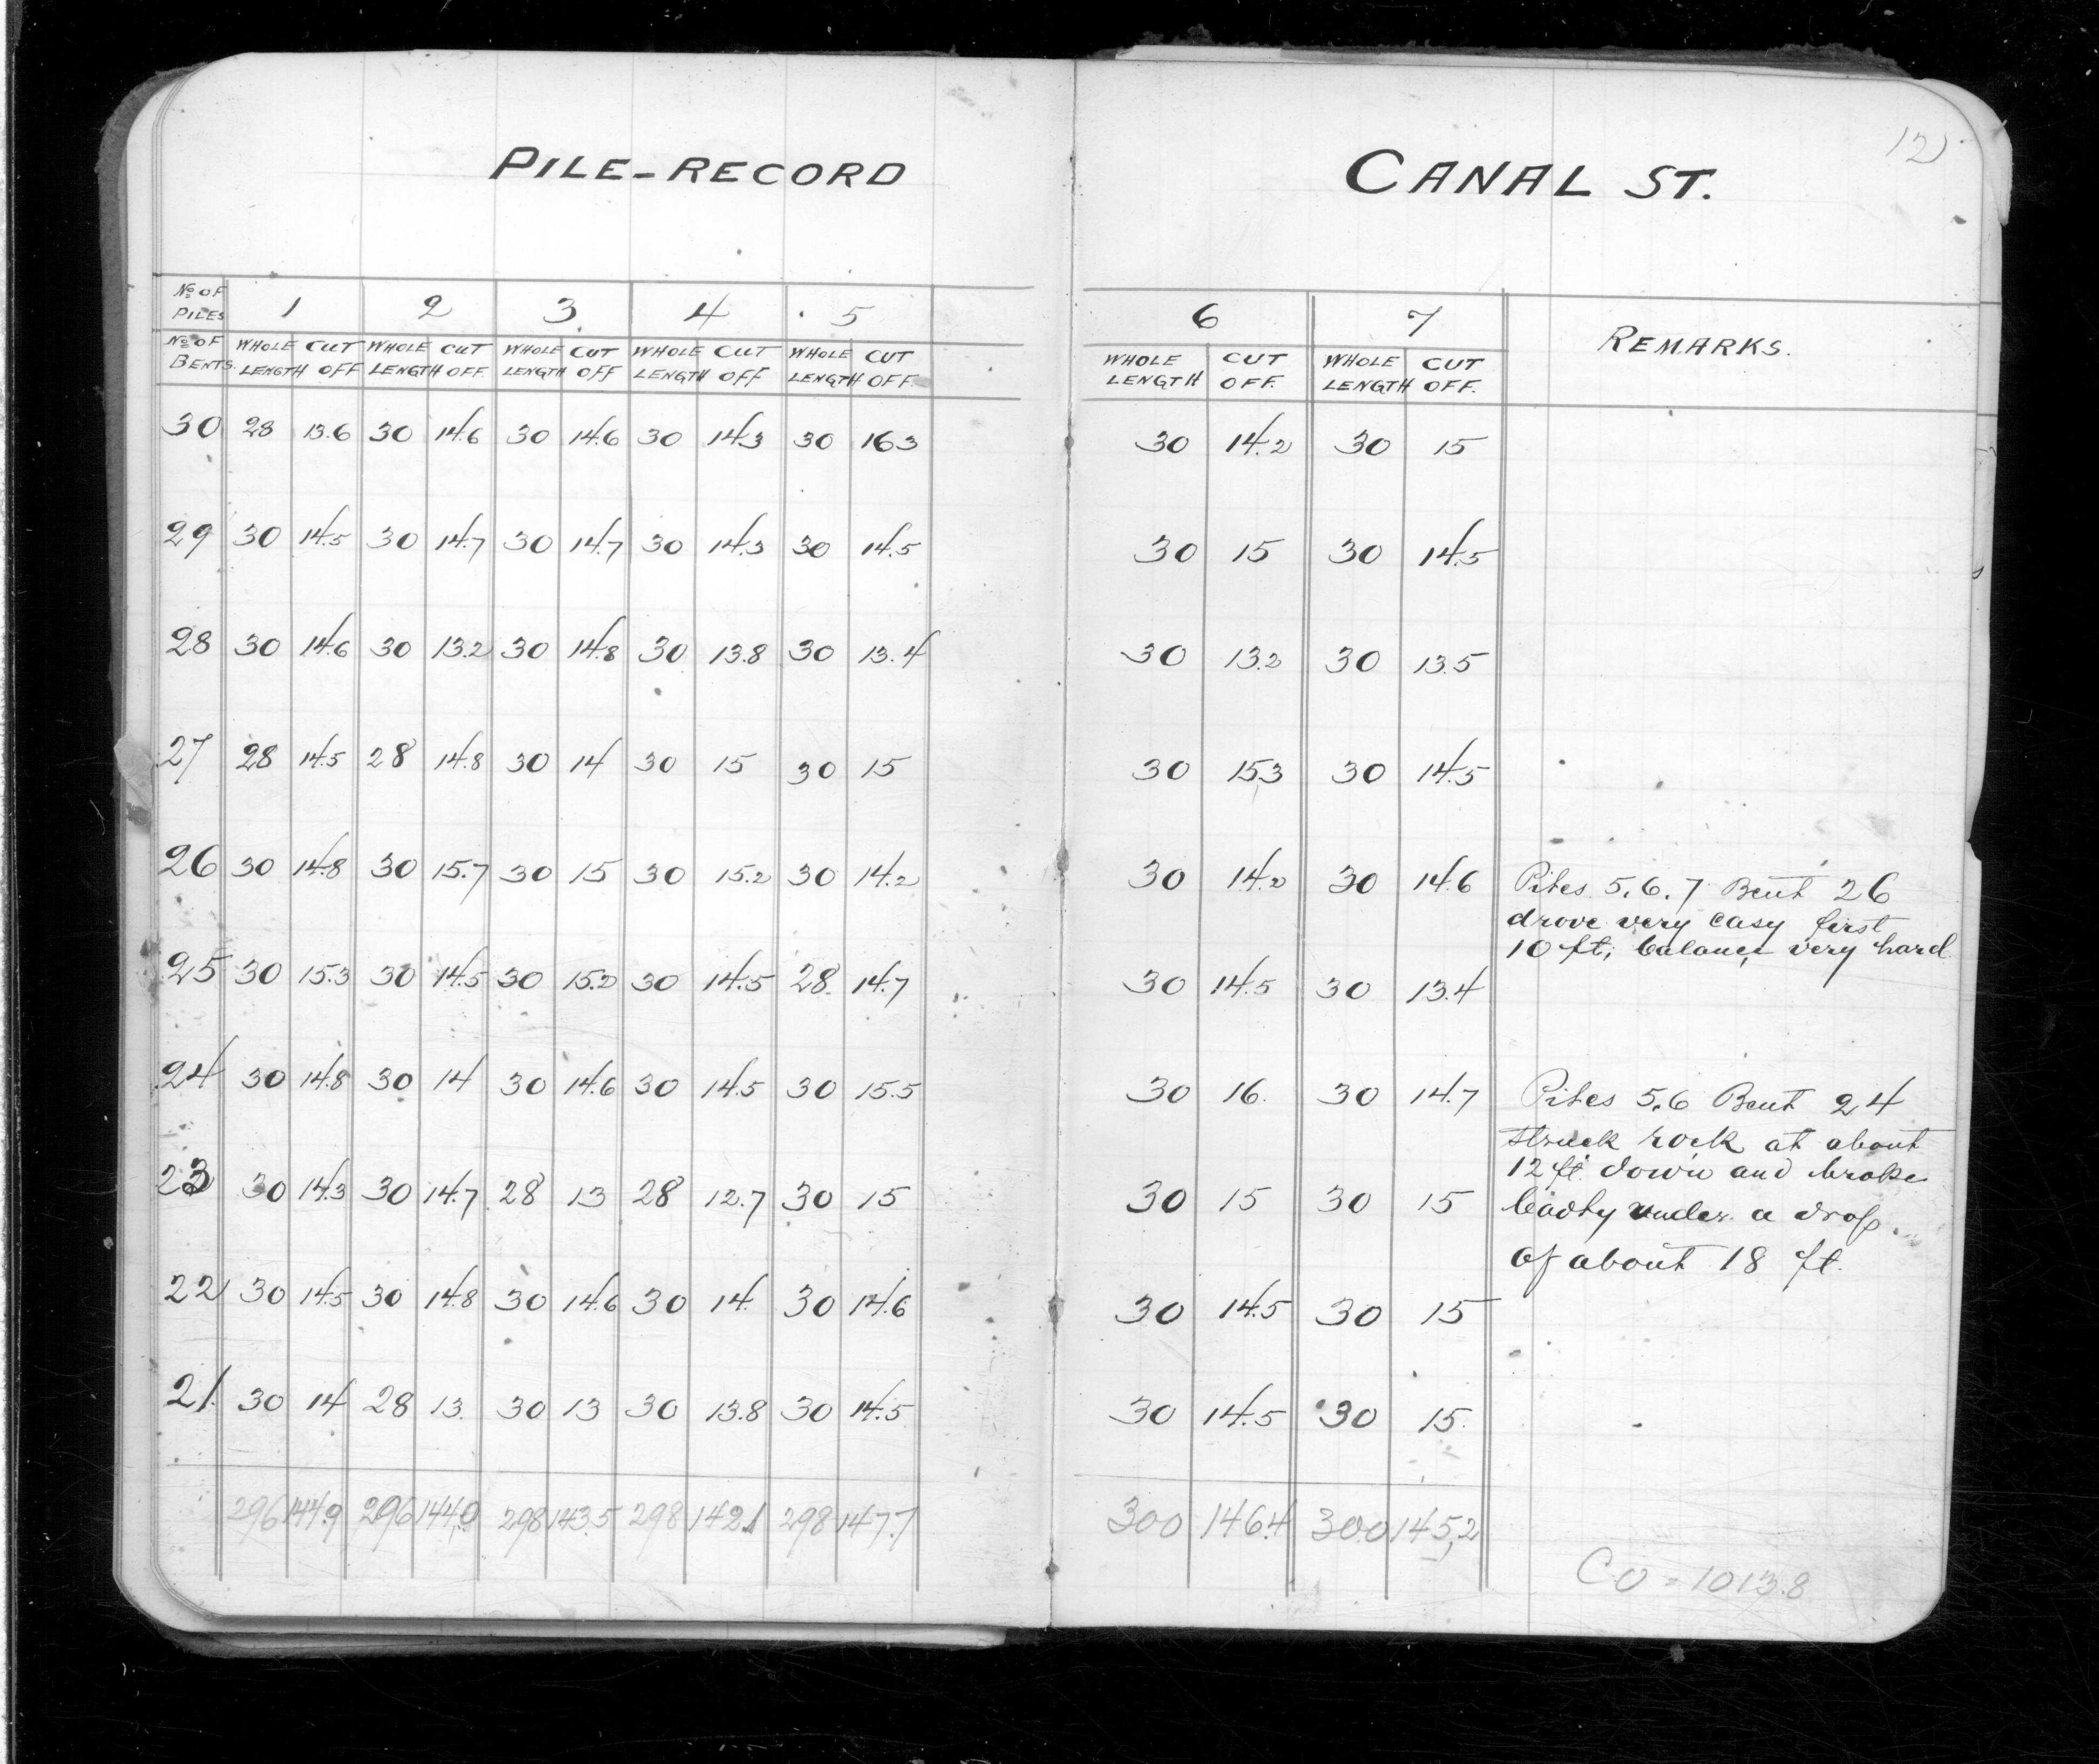 121
PILE-RECORD CANAL ST.
No OF PILES 1 2 3 4 5 6 7 REMARKS.
No OF BENTS. WHOLE LENGTH CUT OFF WHOLE LENGTH CUT OFF. WHOLE LENGTH CUT OFF WHOLE LENGTH CUT OFF WHOLE LENGTH CUT OFF. WHOLE LENGTH CUT OFF. WHOLE LENGTH CUT OFF.
30 28 13.6 30 14.6 30 14.6 30 14.3 30 16.3 30 14.2 30 15
29 30 14.5 30 14.7 30 14.7 30 14.3 30 14.5 30 15 30 14.5
28 30 14.6 30 13.2 30 14.8 30 13.8 30 13.4 30 13.2 30 13.5
27 28 14.5 28 14.8 30 14 30 15 30 15 30 15.3 30 14.5
26 30 14.8 30 15.7 30 15 30 15.2 30 14.2 30 14.2 30 14.6 Piles 5.6.7 Bent 26
drove very easy first
10 ft; balance very hard
25 30 15.3 30 14.5 30 15.2 30 14.5 28 14.7 30 14.5 30 13.4
24 30 14.8 30 14 30 14.6 30 14.5 30 15.5 30 16. 30 14.7 Piles 5.6 Bent 24
struck rock at about
12 ft. down and broke
23 30 14.3 30 14.7 28 13 28 12.7 30 15 30 15 30 15 badly under a drop
of about 18 ft.
22 30 14.5 30 14.8 30 14.6 30 14. 30 14.6 30 14.5 30 15
21. 30 14 28 13. 30 13 30 13.8 30 14.5 30 14.5 30 15.
296 144.9 296 144.0 298 143.5 298 142.1 298 147.7 300 146.4 300 145.2
CO = 1013.8